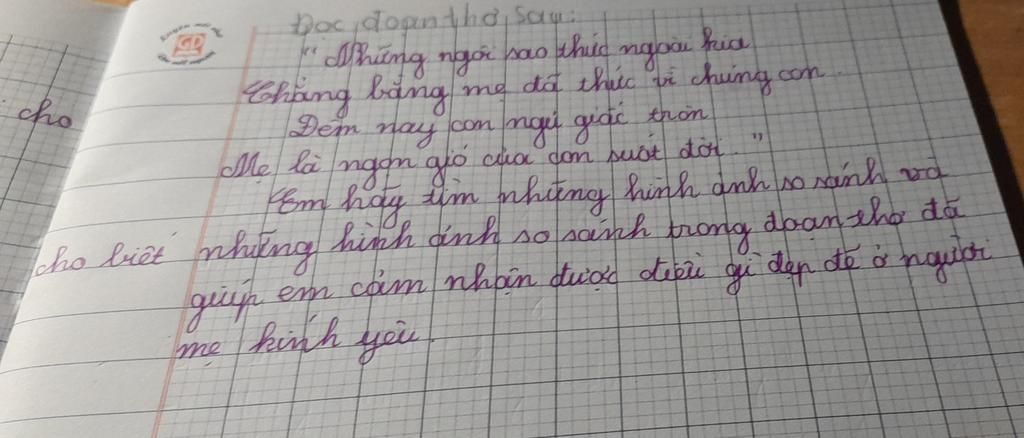 Đọc đoạn thơ sau:
"Những ngôi sao thức ngoài kia
Chẳng bằng mẹ đã thức vì chúng con.
Đêm nay con ngủ giấc thòn
Mẹ là ngọn gió của con suốt đời."
Em hãy tìm những hình ảnh so sánh và
cho biết những hình ảnh so sánh trong đoạn thơ đã
giúp em cảm nhận được điều gì đẹp đẽ ở người
mẹ kính yêu.
cho
GD